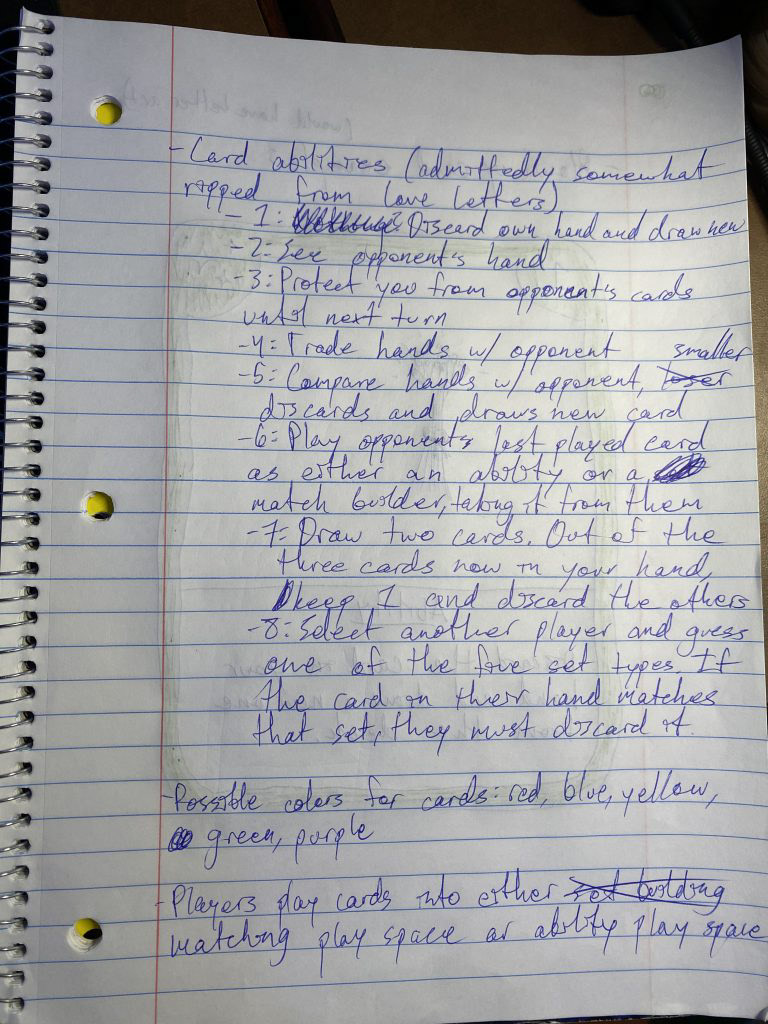 - Card abilities (admittedly somewhat
ripped from love letters)
- 1: Discard own hand and draw new
- 2: See opponent's hand
- 3: Protect you from opponent's cards
until next turn
- 4: Trade hands w/ opponent
- 5: Compare hands w/ opponent, loser smaller
discards and draws new card
- 6: Play opponents last played card
as either an ability or a
match builder, taking it from them
- 7: Draw two cards. Out of the
three cards now in your hand,
keep 1 and discard the others
- 8: Select another player and guess
one of the five set types. If
the card in their hand matches
that set, they must discard it.
- Possible colors for cards: red, blue, yellow,
green, purple
- Players play cards into either set building
matching play space or ability play space